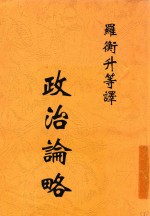 羅衡升等譯
政治論略